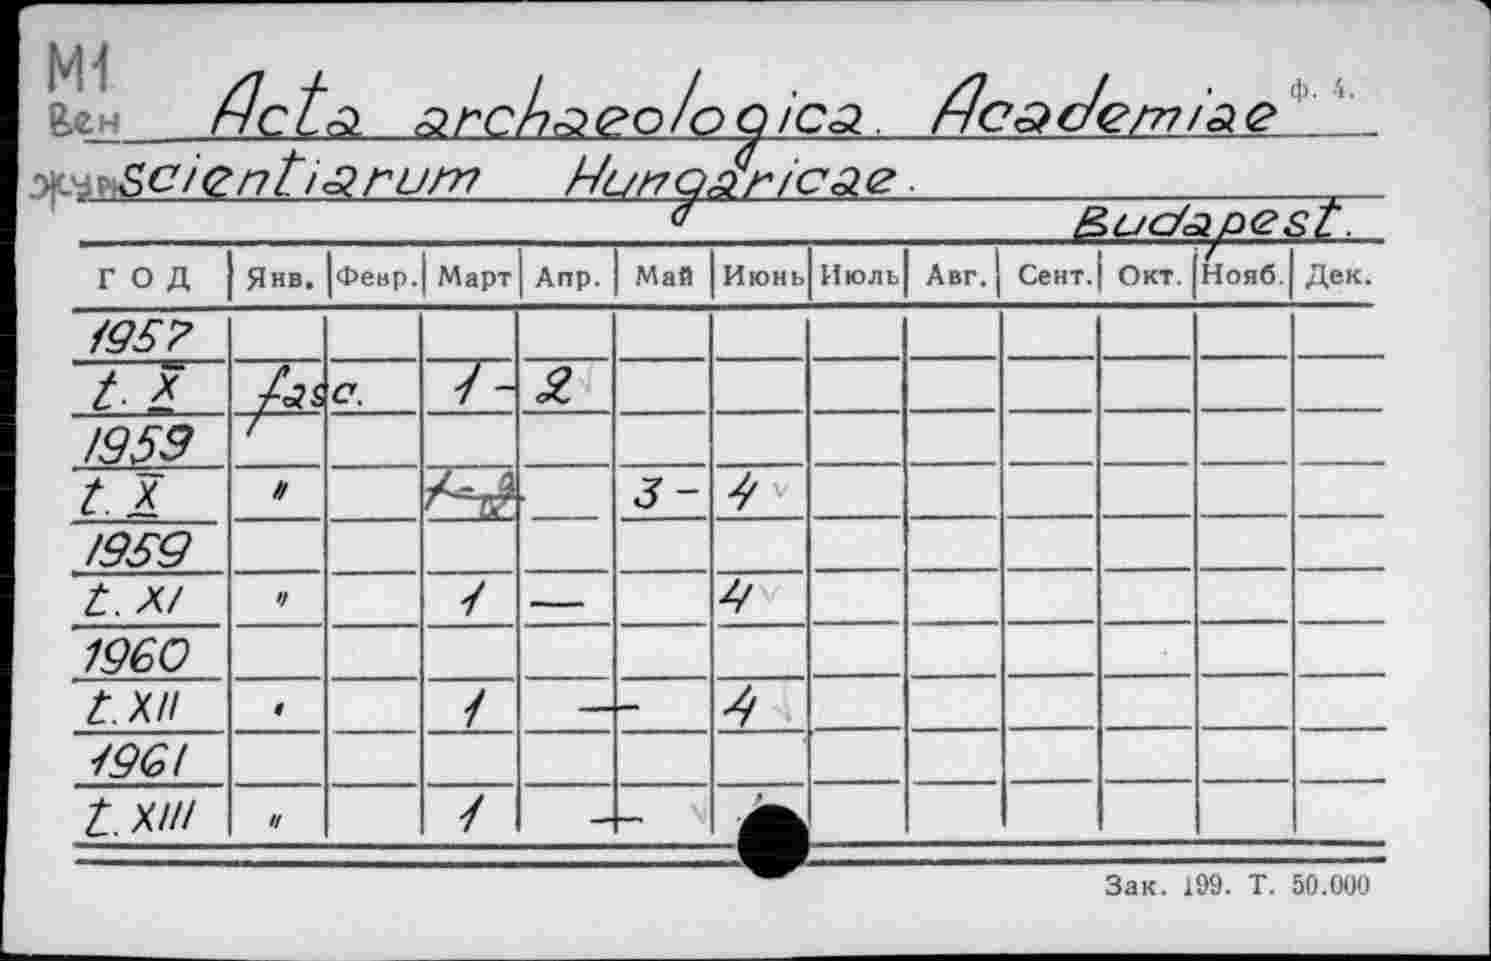 М1
Вен Acta archaeologica. Academiae ф. 4.
журн scientiarum Hungaricae.
Budapest.
ГОД Янв. Февр. Март Апр. Май Июнь Июль Авг. Сент. Окт. Нояб. Дек.
1957
t. X fasc. 1-2
1959
t. X " 1-2 3-4
1959
t. XI " 1 — 4
1960
t. XII " 1 — 4
1961
t. XIII " 1 —
Зак. 199. Т. 50.000